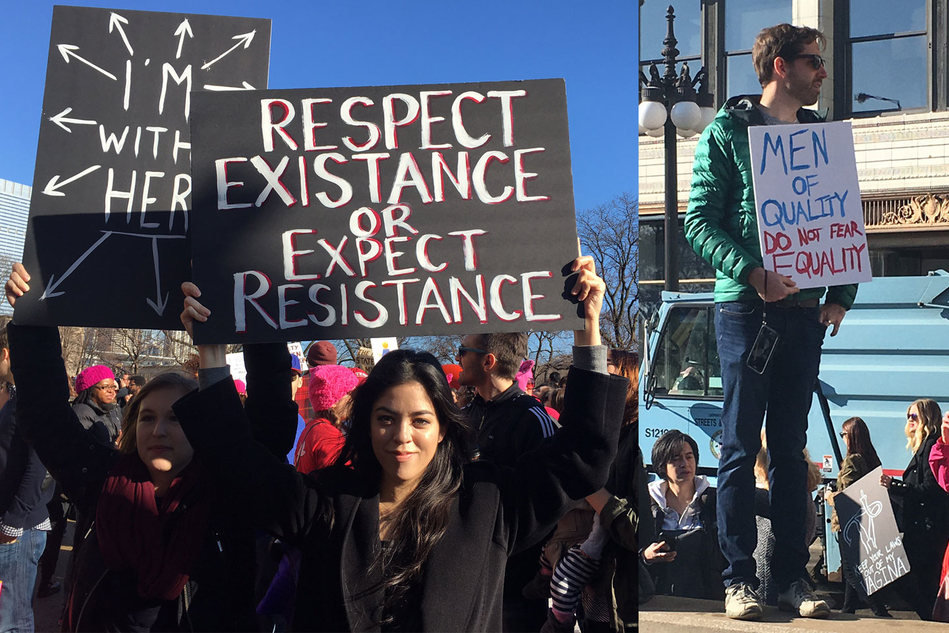 I'M
WITH
HER
RESPECT
EXISTANCE
OR
EXPECT
RESISTANCE
MEN
OF
QUALITY
DO NOT FEAR
EQUALITY
STREETS
KEEP YOUR LAWS
OUT OF MY
VAGINA